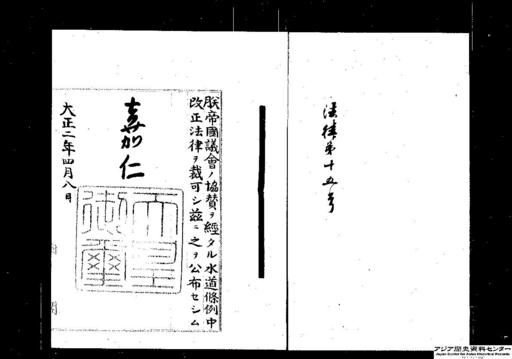 法律第十五号
朕帝國議會ノ協賛ヲ經タル水道條例中
改正法律ヲ裁可シ茲ニ之ヲ公布セシム
嘉仁
天皇
御璽
大正二年四月八日
アジア歴史資料センター
Japan Center for Asian Historical Records